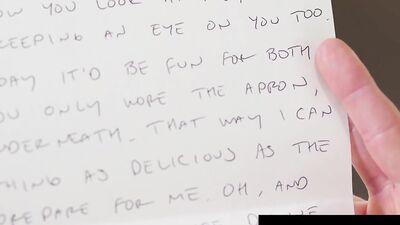 YOU LOOK
KEEPING AN EYE ON YOU TOO.
DAY IT'D BE FUN FOR BOTH
YOU ONLY WORE THE APRON,
UNDERNEATH. THAT WAY I CAN
THING AS DELICIOUS AS THE
PREPARE FOR ME. OH, AND